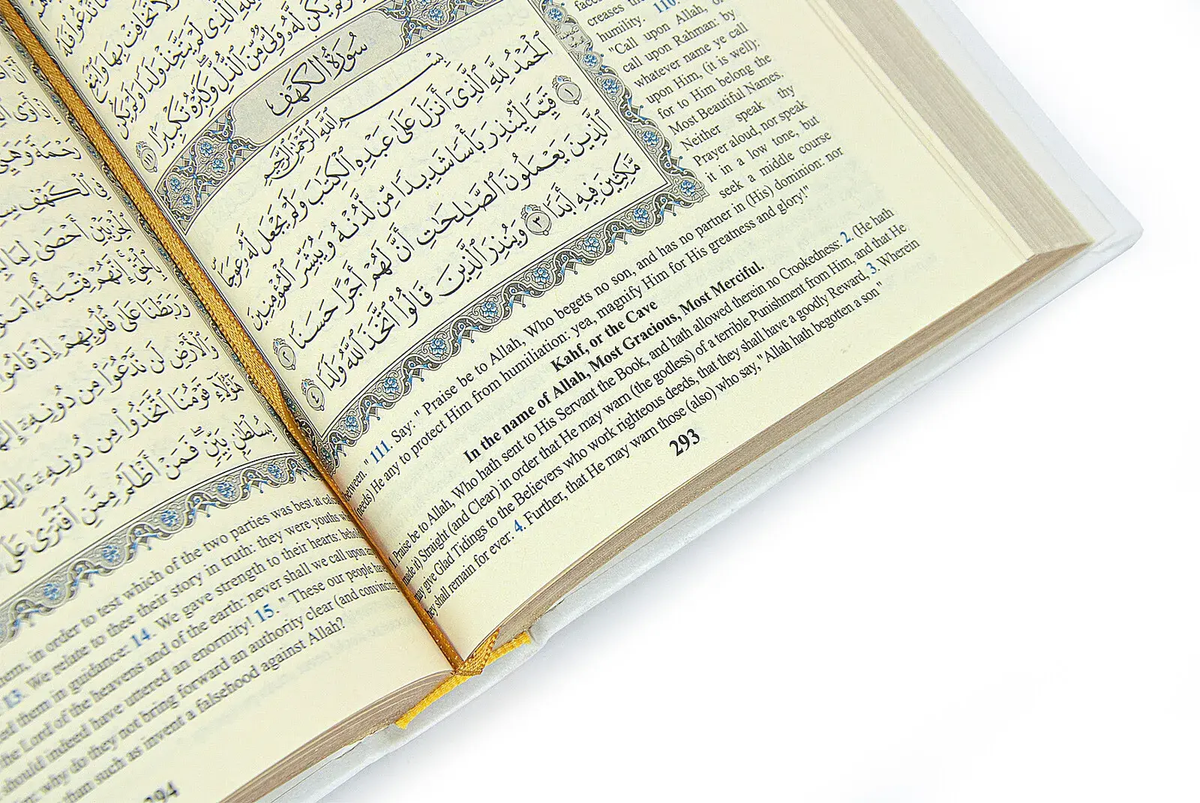 وَلَا تُخَافِتْ بِهَا وَٱبْتَغِ
ٱلَّذِى لَمْ يَتَّخِذْ وَلَدًا وَلَمْ يَكُن
يَكُن لَّهُۥ وَلِىٌّ مِّنَ ٱلذُّلِّ وَكَبِّرْهُ تَكْبِيرًۢا ١١١
سُورَةُ الكَهْفِ
بِسْمِ ٱللَّهِ ٱلرَّحْمَٰنِ ٱلرَّحِيمِ
ٱلْحَمْدُ لِلَّهِ ٱلَّذِىٓ أَنزَلَ عَلَىٰ عَبْدِهِ ٱلْكِتَٰبَ وَلَمْ يَجْعَل لَّهُۥ عِوَجَاۜ
١ قَيِّمًا لِّيُنذِرَ بَأْسًا شَدِيدًا مِّن لَّدُنْهُ وَيُبَشِّرَ ٱلْمُؤْمِنِينَ
ٱلَّذِينَ يَعْمَلُونَ ٱلصَّٰلِحَٰتِ أَنَّ لَهُمْ أَجْرًا حَسَنًا ٢
مَّٰكِثِينَ فِيهِ أَبَدًا ٣ وَيُنذِرَ ٱلَّذِينَ قَالُوا۟ ٱتَّخَذَ ٱللَّهُ وَلَدًا ٤
creases
humility. 110.
"Call upon Allah, or
call upon Rahman: by
whatever name ye call
upon Him, (it is well):
for to Him belong the
Most Beautiful Names.
Neither speak thy
Prayer aloud, nor speak
it in a low tone, but
seek a middle course
between." 111. Say: " Praise be to Allah, Who begets no son, and has no partner in (His) dominion: nor
(needs) He any to protect Him from humiliation: yea, magnify Him for His greatness and glory!"
Kahf, or the Cave
In the name of Allah, Most Gracious, Most Merciful.
Praise be to Allah, Who hath sent to His Servant the Book, and hath allowed therein no Crookedness: 2. (He hath
made it) Straight (and Clear) in order that He may warn (the godless) of a terrible Punishment from Him, and that He
may give Glad Tidings to the Believers who work righteous deeds, that they shall have a goodly Reward, 3. Wherein
they shall remain for ever: 4. Further, that He may warn those (also) who say, "Allah hath begotten a son"
293
أَحْصَىٰ لِمَا
إِنَّهُمْ فِتْيَةٌ ءَامَنُوا۟
وَرَبَطْنَا عَلَىٰ قُلُوبِهِمْ إِذْ قَامُوا۟
وَٱلْأَرْضِ لَن نَّدْعُوَا۟ مِن دُونِهِۦٓ إِلَٰهًا
هَٰٓؤُلَآءِ قَوْمُنَا ٱتَّخَذُوا۟ مِن دُونِهِۦٓ ءَالِهَةً
بِسُلْطَٰنٍۭ بَيِّنٍ فَمَنْ أَظْلَمُ مِمَّنِ ٱفْتَرَىٰ عَلَى
them, in order to test which of the two parties was best at
13. We relate to thee their story in truth: they were youths
them in guidance: 14. We gave strength to their hearts:
the Lord of the heavens and of the earth: never shall we call upon
should indeed have uttered an enormity! 15." These our people have
why do they not bring forward an authority clear (and convincing
than such as invent a falsehood against Allah?
294